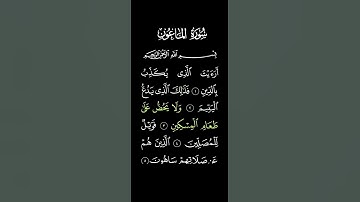 سُورَةُ المَاعُونِ
بِسْمِ اللَّهِ الرَّحْمَٰنِ الرَّحِيمِ
أَرَءَيْتَ الَّذِي يُكَذِّبُ
بِالدِّينِ ١ فَذَٰلِكَ الَّذِي يَدُعُّ
الْيَتِيمَ ٢ وَلَا يَحُضُّ عَلَىٰ
طَعَامِ الْمِسْكِينِ ٣ فَوَيْلٌ
لِّلْمُصَلِّينَ ٤ الَّذِينَ هُمْ
عَن صَلَاتِهِمْ سَاهُونَ ٥